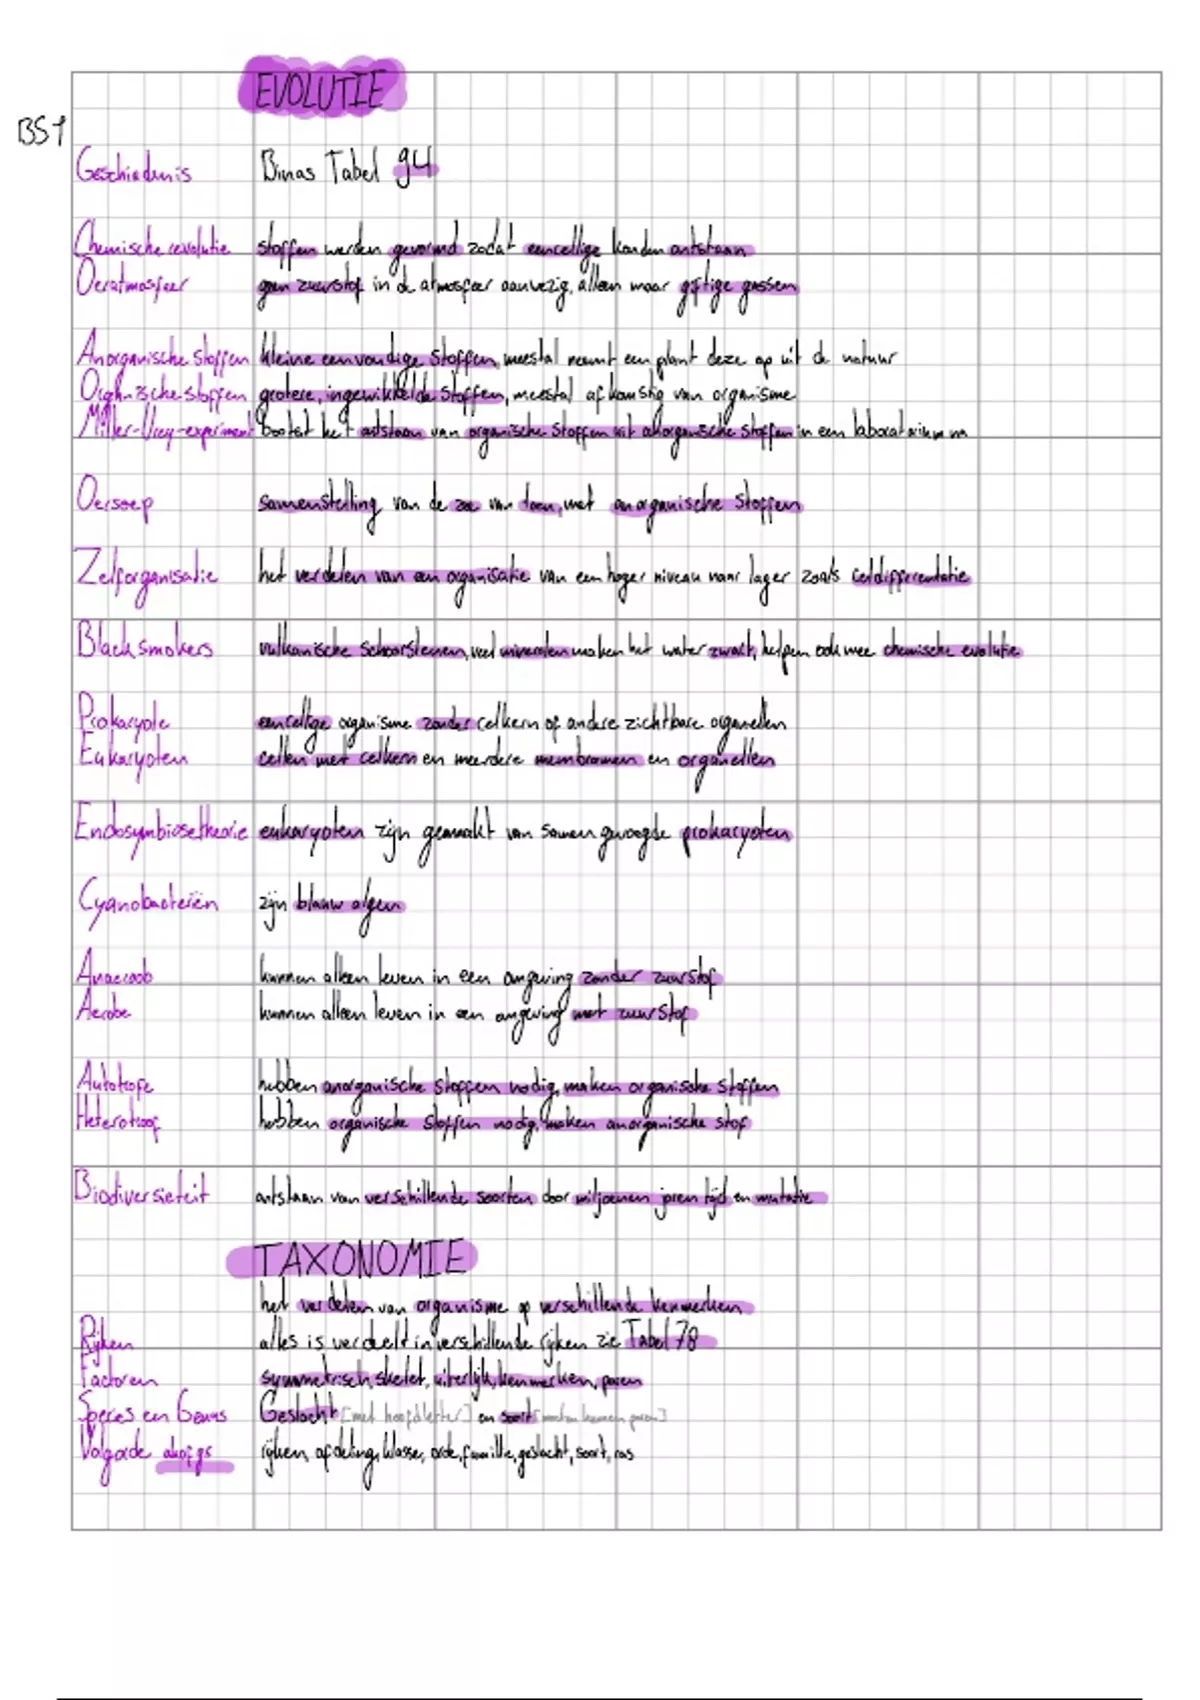 EVOLUTIE
BS1
Geschiedenis Binas Tabel 94
Chemische revolutie stoffen werden gevormd zodat eencellige konden ontstaan
Oeratmosfeer geen zuurstof in de atmosfeer aanwezig, alleen maar giftige gassen
Anorganische stoffen kleine eenvoudige stoffen, meestal neemt een plant deze op uit de natuur
Organische stoffen grotere, ingewikkelde stoffen, meestal afkomstig van organisme
Miller-Urey-experiment bootst het ontstaan van organische stoffen uit anorganische stoffen in een laboratorium na
Oersoep samenstelling van de zee van toen, met anorganische stoffen
Zelforganisatie het verdelen van een organisatie van een hoger niveau naar lager zoals celdifferentatie
Black smokers vulkanische schoorstenen, veel mineralen maken het water zwart, helpen ook mee chemische evolutie
Prokaryote eencellige organisme zonder celkern of andere zichtbare organellen
Eukaryoten cellen met celkern en meerdere membramen en organellen
Endosymbiosetheorie eukaryoten zijn gemaakt van samen gevoegde prokaryoten
Cyanobacteriën zijn blauw algen
Anaeroob kunnen alleen leven in een omgeving zonder zuurstof
Aerobe kunnen alleen leven in een omgeving met zuurstof
Autotrofe hebben anorganische stoffen nodig, maken organische stoffen
Heterotroof hebben organische stoffen nodig, maken anorganische stof
Biodiversieteit ontstaan van verschillende soorten door miljoenen jaren tijd en mutatie
TAXONOMIE
het verdelen van organisme op verschillende kenmerken
Rijken alles is verdeelt in verschillende rijken zie Tabel 78
Factoren symmetrisch, skelet, uiterlijk, kenmerken, paren
Speces en Genus Geslacht [met hoofdletter] en soort [moeten kunnen paren]
Volgorde rijken, afdeling, klasse, orde, familie, geslacht, soort, ras